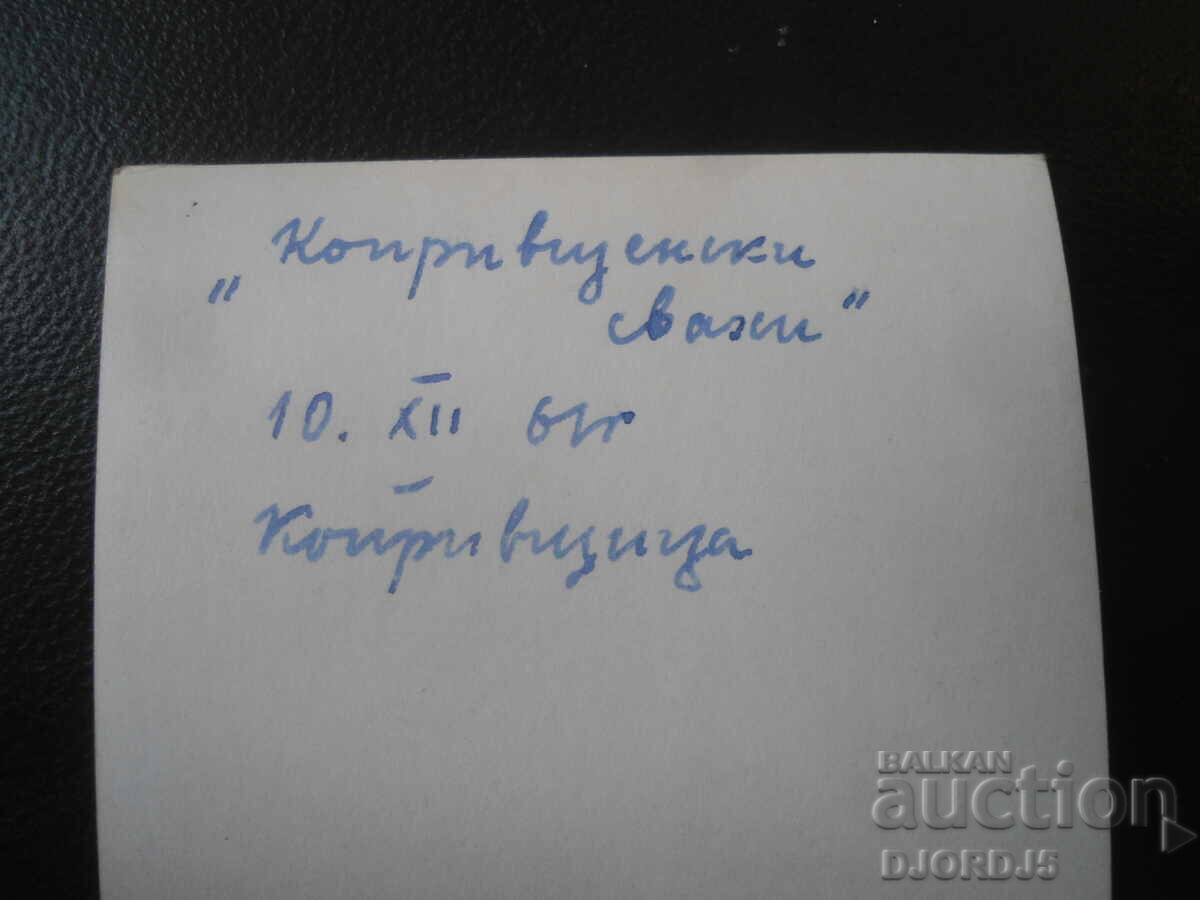 „Копривщенски
свахи"
10. XII 61г
Копривщица
BALKAN
auction
DJORDJ5